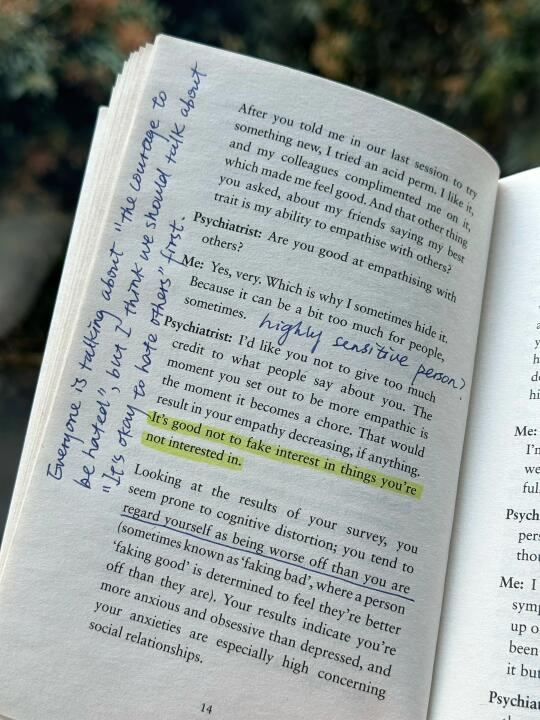 Everyone is talking about "the courage to
be hated", but I think we should talk about
"It's okay to hate others" first.
After you told me in our last session to try
something new, I tried an acid perm. I like it,
and my colleagues complimented me on it,
which made me feel good. And that other thing
you asked, about my friends saying my best
trait is my ability to empathise with others?
Psychiatrist: Are you good at empathising with
others?
Me: Yes, very. Which is why I sometimes hide it.
Because it can be a bit too much for people,
sometimes. highly sensitive person?
Psychiatrist: I'd like you not to give too much
credit to what people say about you. The
moment you set out to be more empathic is
the moment it becomes a chore. That would
result in your empathy decreasing, if anything.
It's good not to fake interest in things you're
not interested in.
Looking at the results of your survey, you
seem prone to cognitive distortion; you tend to
regard yourself as being worse off than you are
(sometimes known as 'faking bad', where a person
'faking good' is determined to feel they're better
off than they are). Your results indicate you're
more anxious and obsessive than depressed, and
your anxieties are especially high concerning
social relationships.
14
Me:
I'm
we
full
Psych
pers
thou
Me: I
symp
up o
been
it but
Psychia